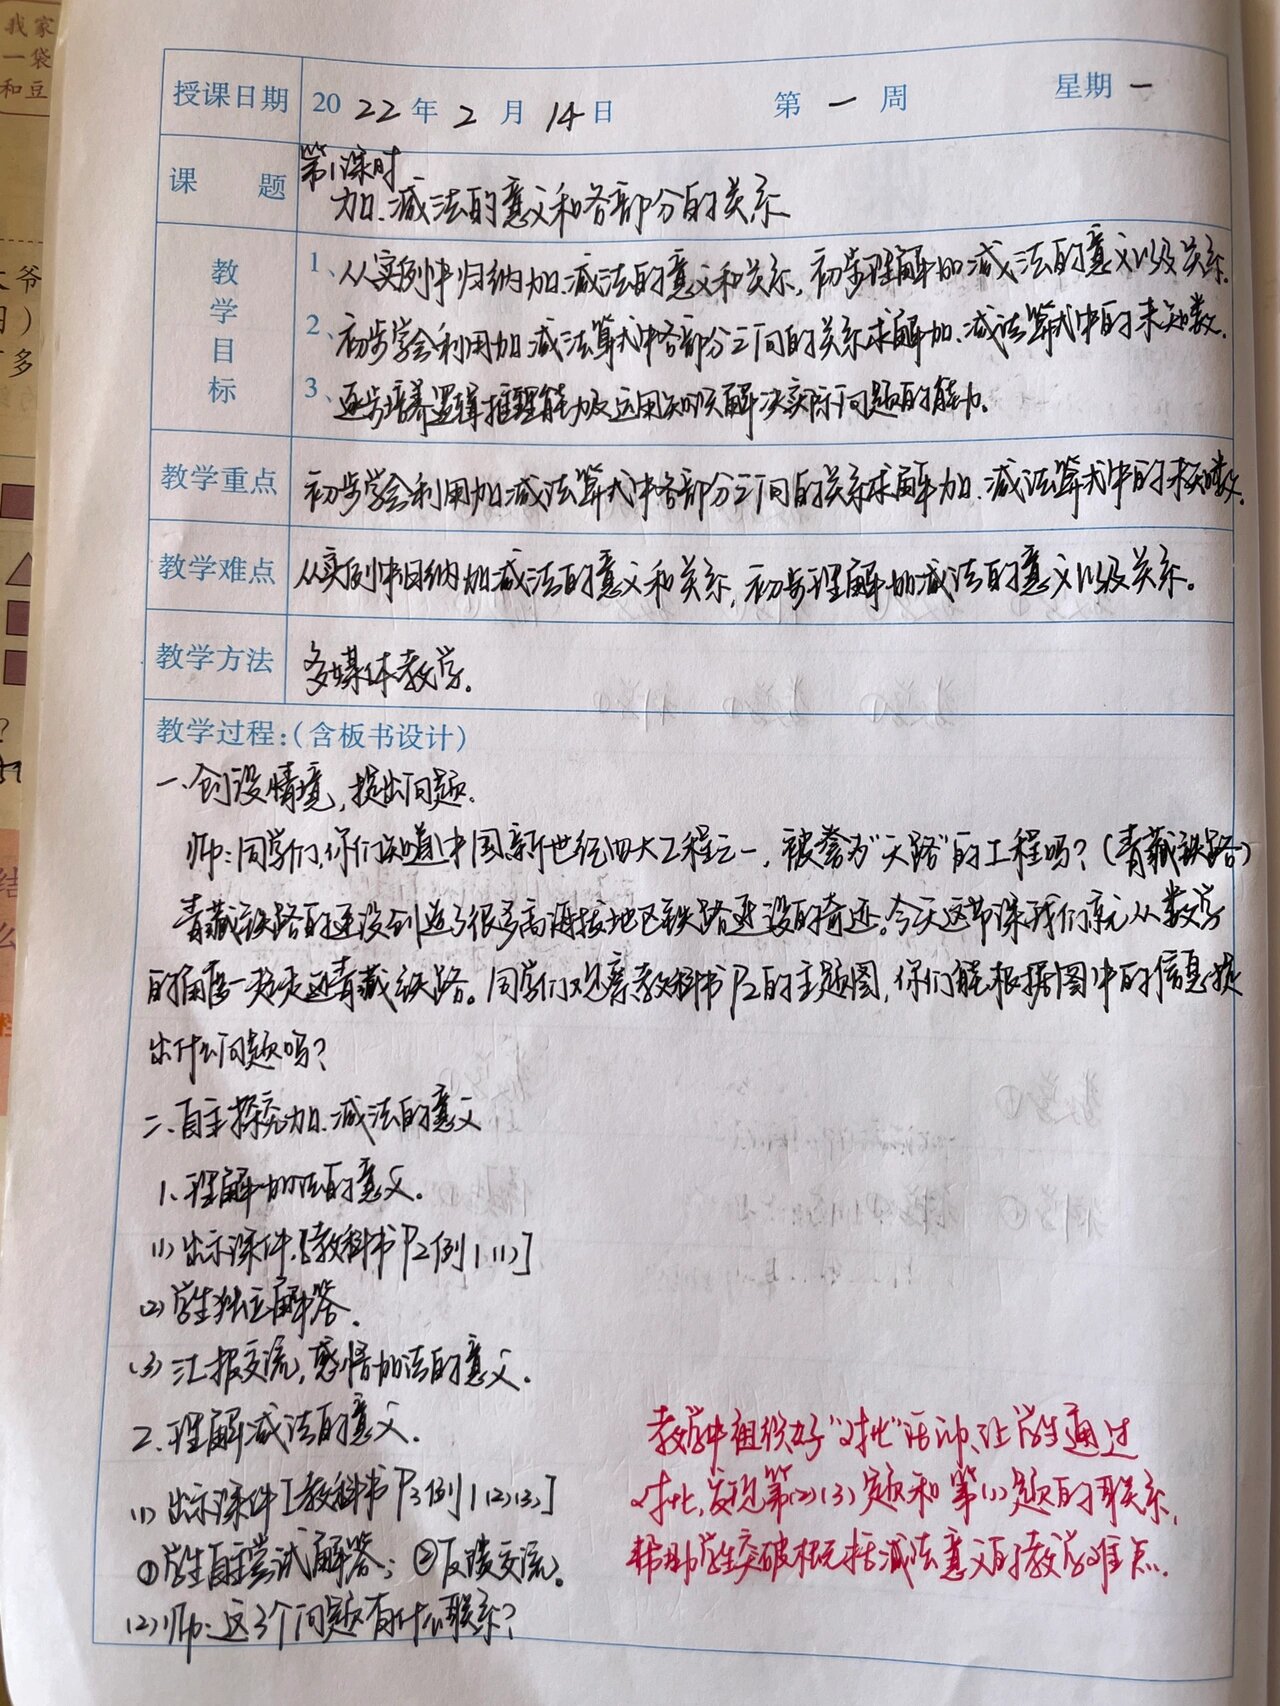 我家
一袋
和豆
授课日期 2022年2月14日 第一周 星期一
课题 第1课时
加、减法的意义和各部分的关系
教学目标 1、从实例中归纳加、减法的意义和关系,初步理解加、减法的意义以及关系.
2、初步学会利用加、减法算式中各部分之间的关系求解加、减法算式中的未知数.
3、逐步培养逻辑推理能力及运用知识解决实际问题的能力.
教学重点 初步学会利用加、减法算式中各部分之间的关系求解加、减法算式中的未知数.
教学难点 从实例中归纳加减法的意义和关系,初步理解加减法的意义以及关系。
教学方法 多媒体教学.
教学过程:(含板书设计)
一、创设情境,提出问题.
师:同学们,你们知道中国新世纪四大工程之一,被誉为“天路”的工程吗?(青藏铁路)
青藏铁路的建设创造了很多高海拔地区铁路建设的奇迹。今天这节课我们就从数学
的角度一起走近青藏铁路。同学们观察教科书P2的主题图,你们能根据图中的信息提
出什么问题吗?
二、自主探究加、减法的意义
1、理解加法的意义.
(1)出示课件.[教科书P2例1(1)]
(2)学生独立解答.
(3)汇报交流,感悟加法的意义.
2.理解减法的意义.
(1)出示课件[教科书P3例1(2)(3)]
①学生自主尝试解答;②反馈交流。
(2)师:这3个问题有什么联系?
教学中组织好“对比”活动,让学生通过
对比,发现第(2)(3)题和第(1)题的联系,
帮助学生突破概括减法意义的教学难点.